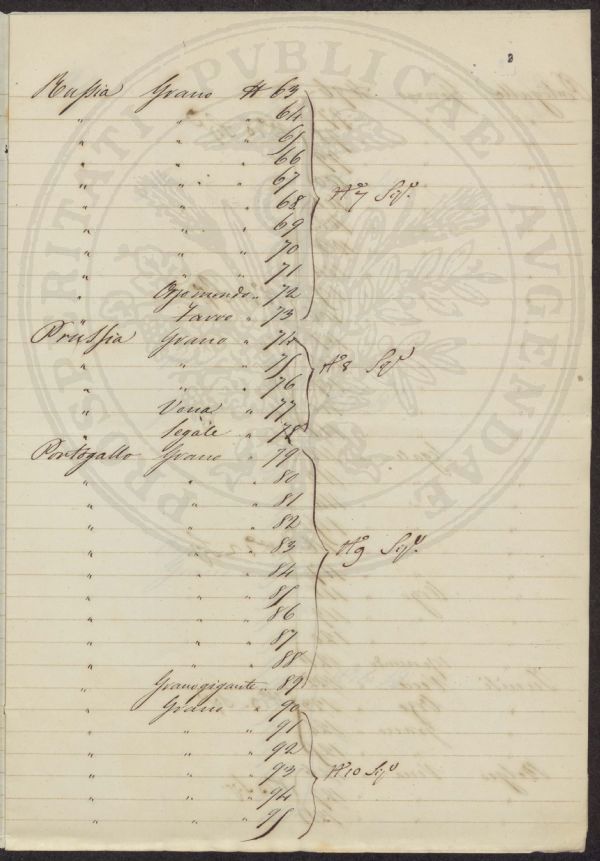 3
Russia Grano N 63
" " " 64
" " " 65
" " " 66
" " " 67
" " " 68
" " " 69
" " " 70
" " " 71
" Orzo mondo " 72
" Farro " 73
N° 7 Sigi.
Prussia Grano " 74
" " " 75
" " " 76
" Vena " 77
" Segale " 78
N° 8
Portogallo Grano " 79
" " " 80
" " " 81
" " " 82
" " " 83
" " " 84
" " " 85
" " " 86
" " " 87
" " " 88
" Grano gigante " 89
N° 9
" Grano " 90
" " " 91
" " " 92
" " " 93
" " " 94
" " " 95
N° 10
PROSPERITATI PVBLICAE AVGENDAE